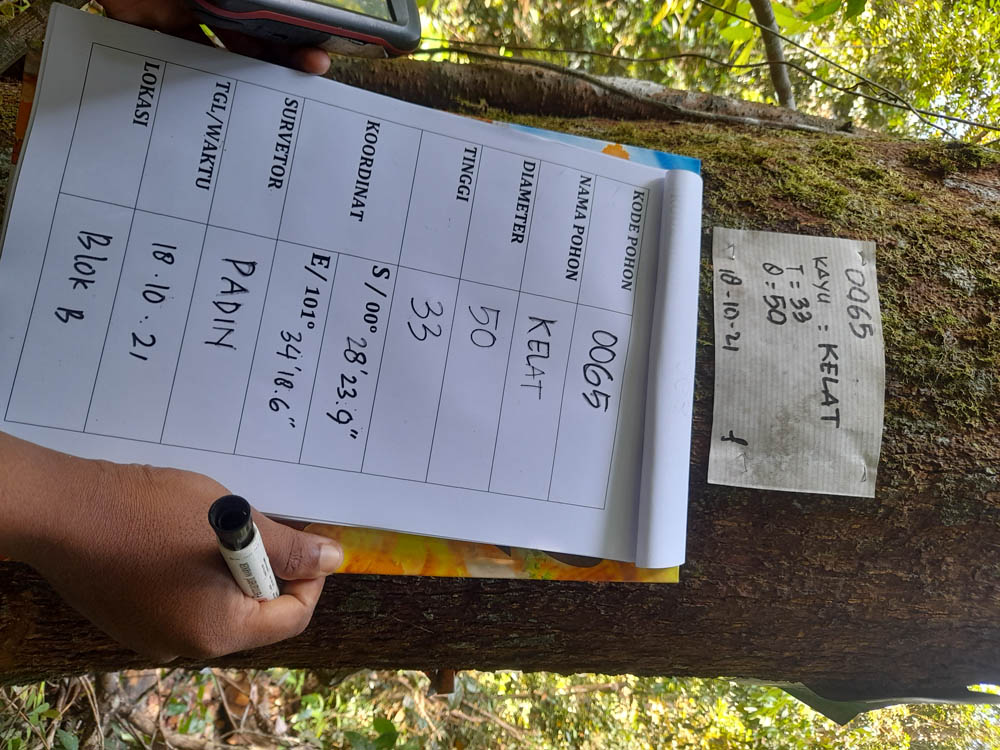 0065
KAYU : KELAT
T = 33
Ø = 50
18-10-21
KODE POHON 0065
NAMA POHON KELAT
DIAMETER 50
TINGGI 33
KOORDINAT S / 00° 28'23.9"
E/ 101° 34'18.6"
SURVETOR PADIN
TGL/WAKTU 18.10.21
LOKASI Blok B